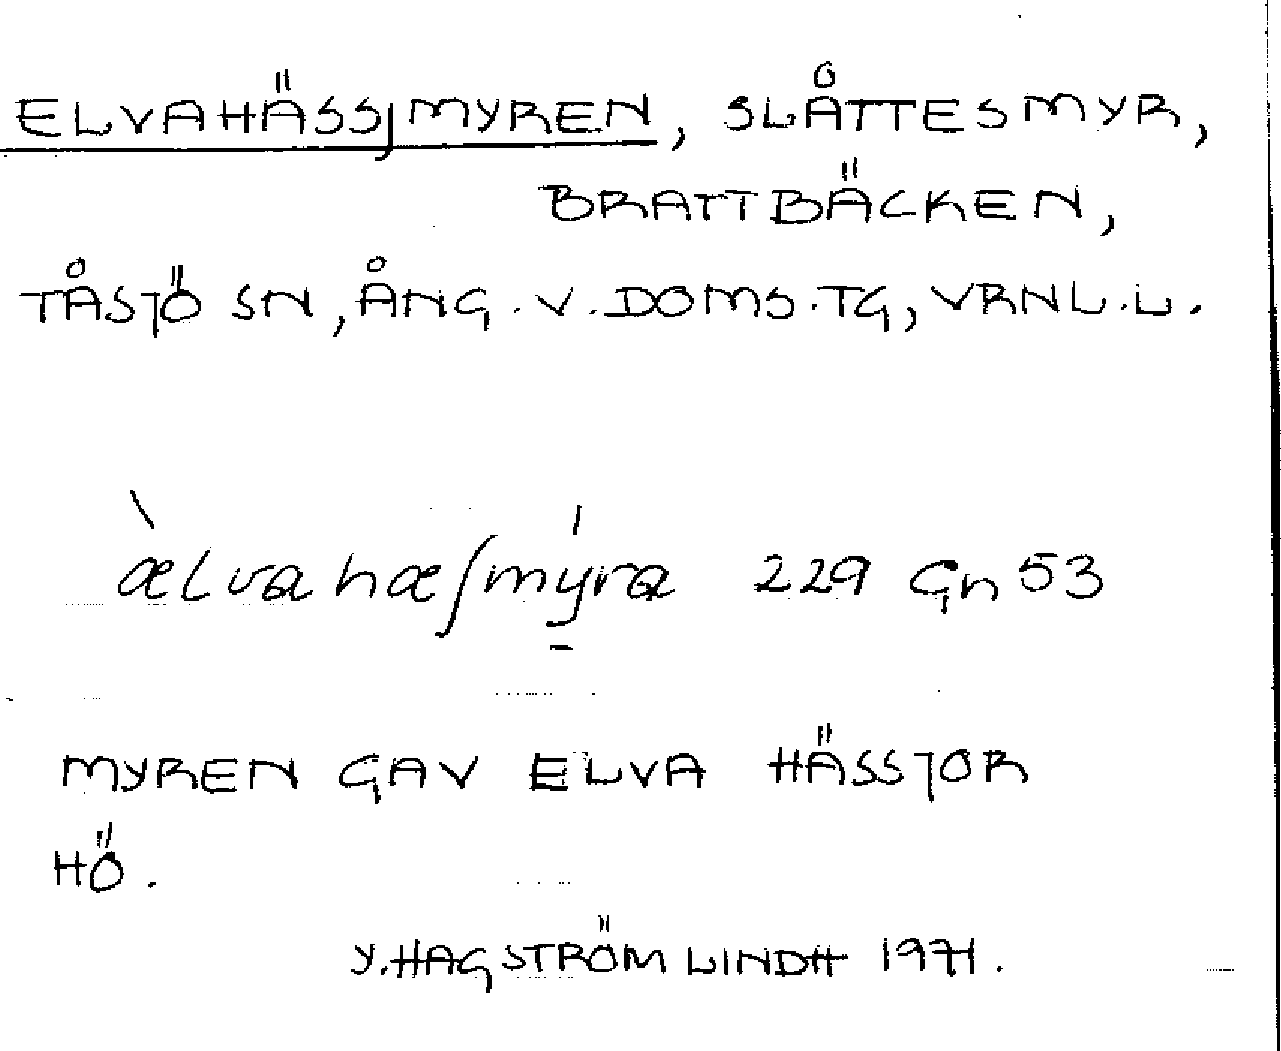 ELVAHÄSSJMYREN, SLÅTTESMYR,
BRATTBÄCKEN,
TÅSJÖ SN, ÅNG. V. DOMS. TG, VRNL. L.
æLvahæʃmýra 229 Gn 53
MYREN GAV ELVA HÄSSJOR
HÖ.
Y. HAGSTRÖM LINDH 1971.